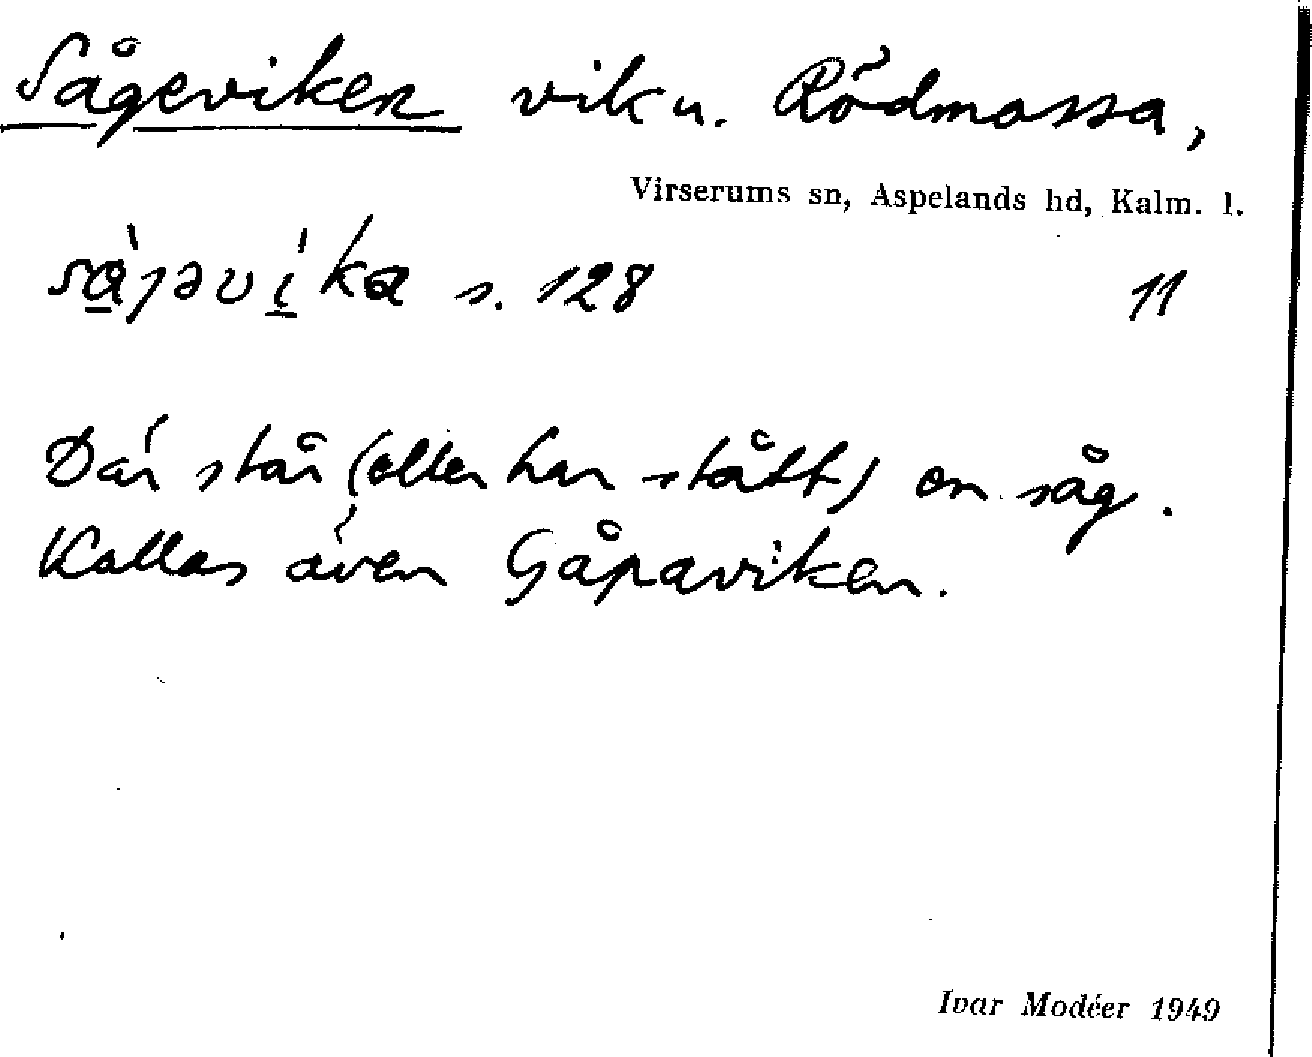 Sågeviken vik u. Rödmossa,
Virserums sn, Aspelands hd, Kalm. l.
s. 128 11
Där står (eller har stått) en såg.
Kallas även Gåpaviken.
Ivar Modéer 1949